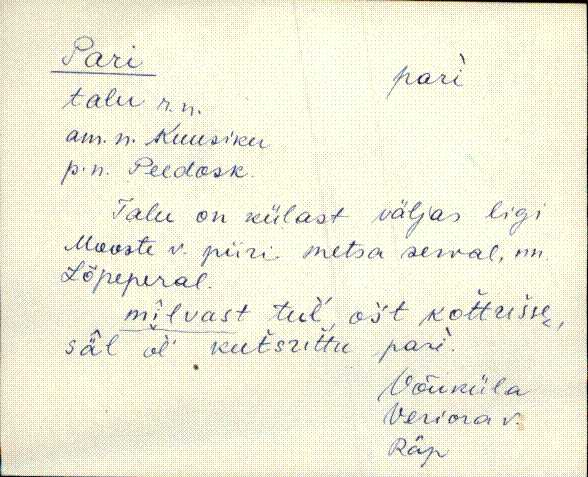 Pari
pari̬
talu r.n.
am.n. Kuusiku
p.n. Peedosk.
Talu on külast väljas ligi
Mooste v. piiri metsa serval, nn.
Lõpeperal.
milvast tuĺ ošt kottrisse,
säl oĺ kutsuttu pari.
Võuküla
Veriora v.
Räp